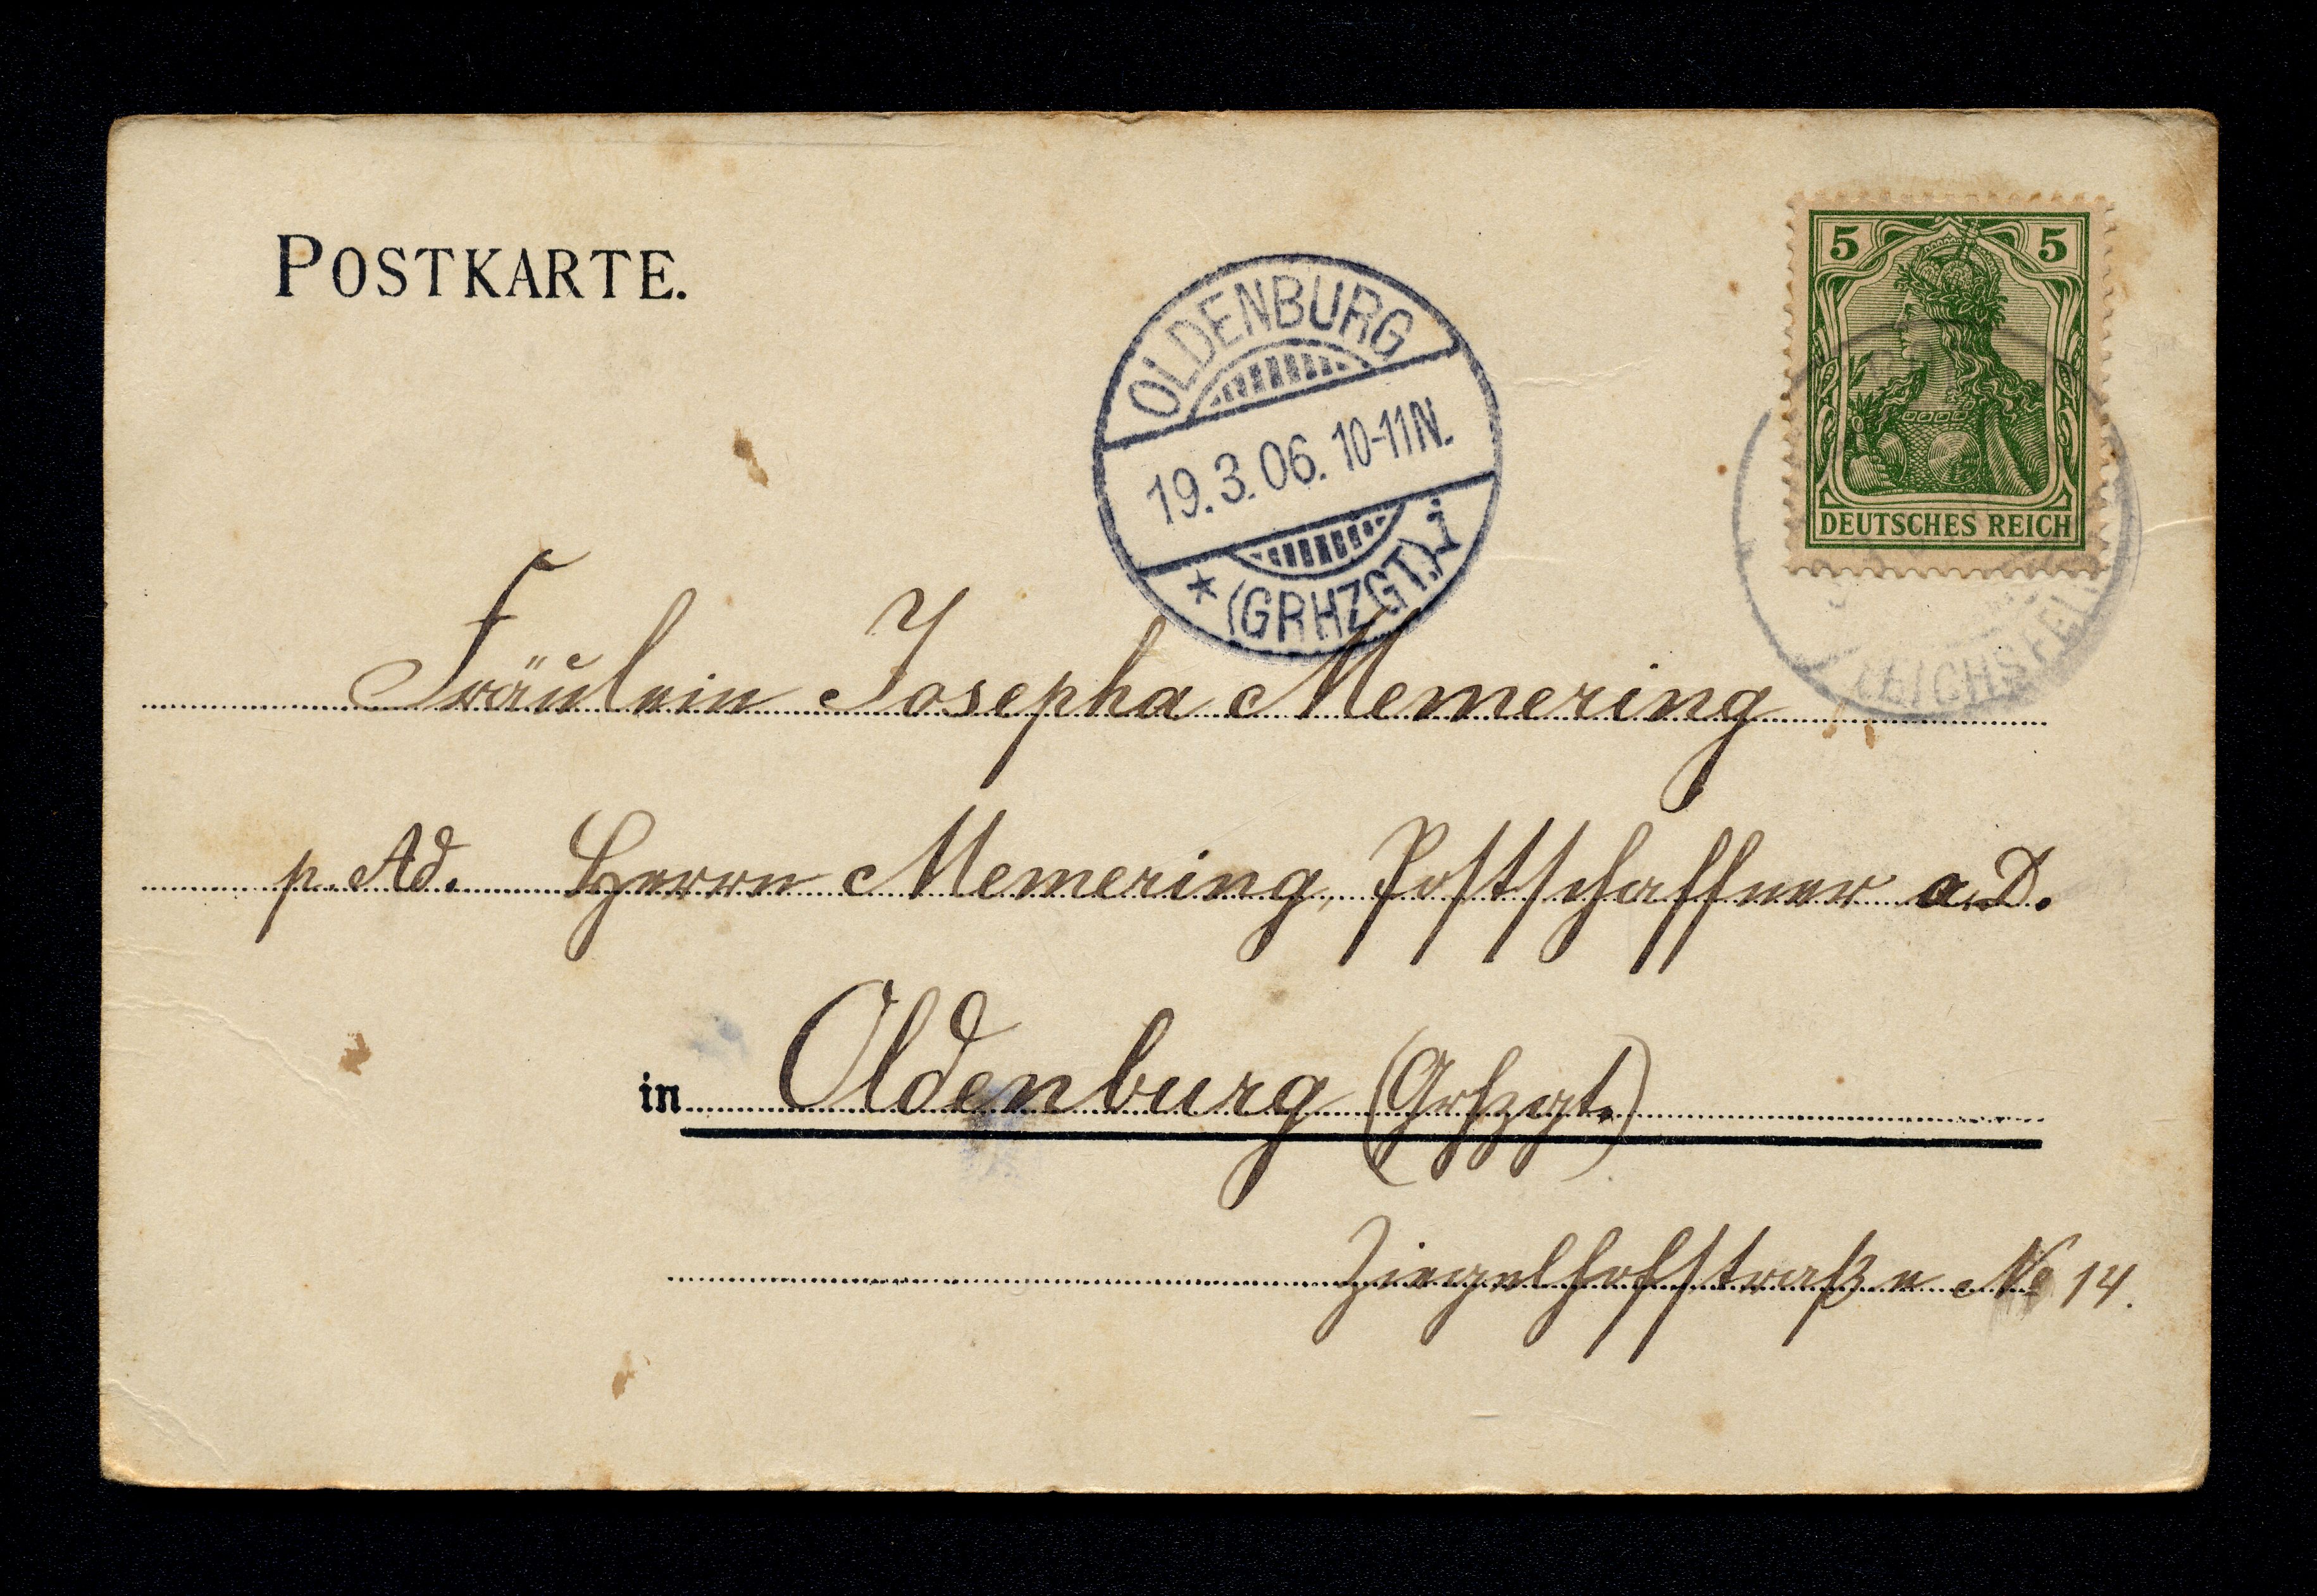 POSTKARTE.
5 5
DEUTSCHES REICH
OLDENBURG
19.3.06. 10-11N.
* (GRHZGT.) 1
Fräulein Josepha Memering
p. Ad. Herrn Memering, Postschaffner a.D.
in Oldenburg (Grhzgt.)
Ziegelhofstraße № 14.